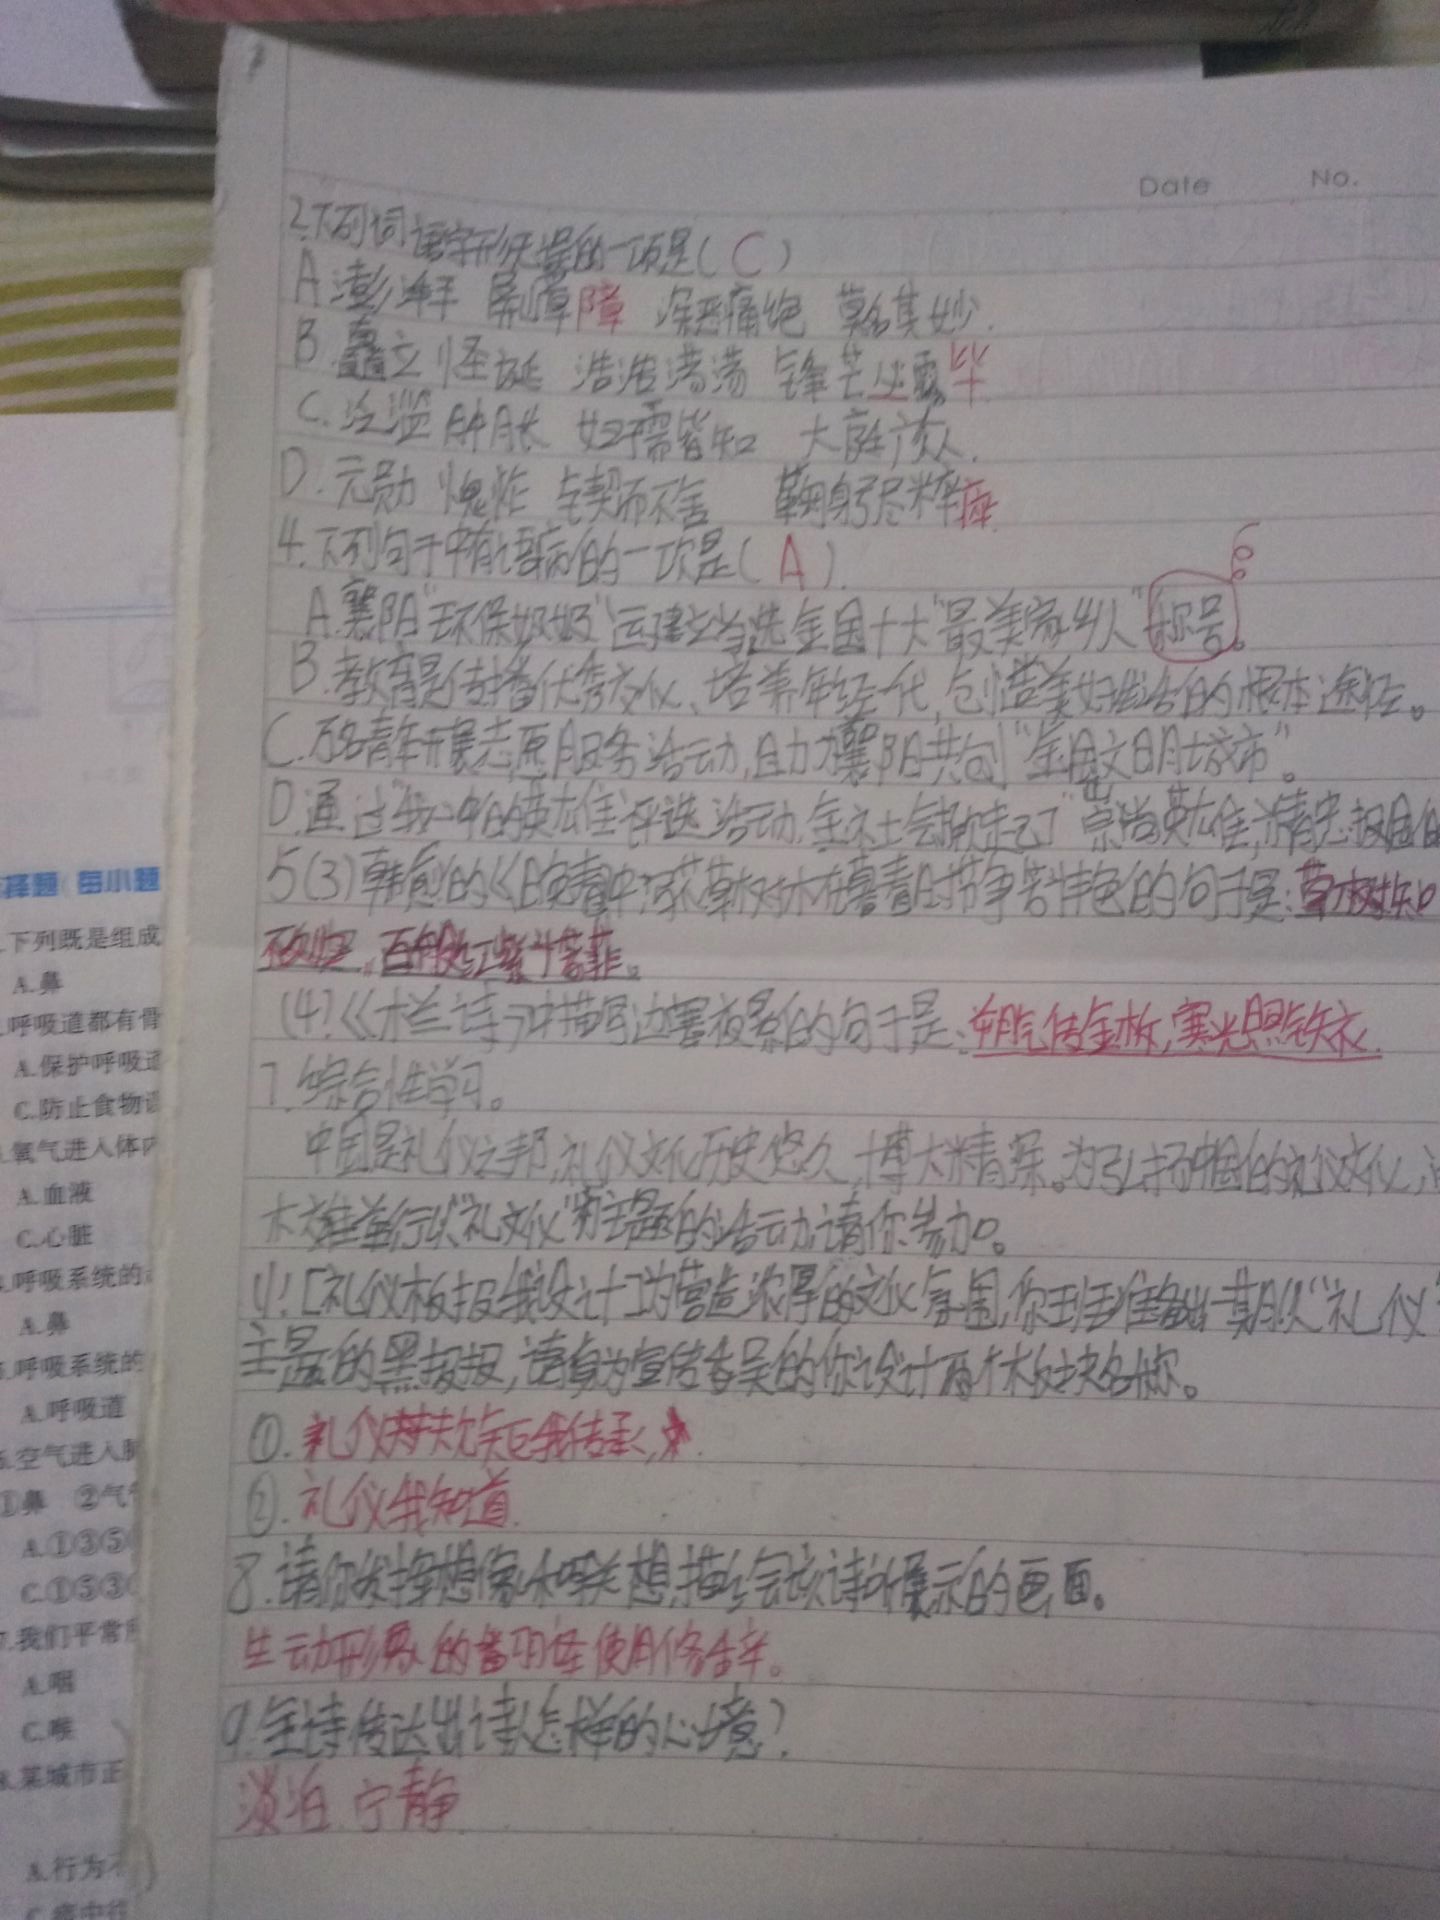 Date No.
2.下列词语字形无误的一项是(C)
A 澎湃 屏障 障 深恶痛绝 莫名其妙.
B.矗立 怪诞 浩浩荡荡 锋芒必露 毕
C.泛滥 肿胀 妇孺皆知 大庭广众.
D.元勋 愧怍 锲而不舍 鞠躬尽粹 瘁
4.下列句子中有语病的一项是(A).
A.襄阳"环保奶奶"运建立当选全国十大"最美家乡人"称号。
B.教育是传播优秀文化、培养年轻一代,创造美好生活的根本途径。
C.万名青年开展志愿服务活动,助力襄阳共创"全国文明城市"。
D.通过"我心中的英雄"评选活动,全社会掀起了"崇尚英雄,精忠报国的
5(3)韩愈的《晚春》中,写草树木在暮春时节争芳斗色的句子是:草树知
不久归,百般红紫斗芳菲。
(4)《木兰诗》中描写边塞夜景的句子是:朔气传金柝,寒光照铁衣.
7.综合性学习。
中国是礼仪之邦,礼仪文化历史悠久,博大精深。为弘扬中国的礼仪文化,
校准举行以"礼文化"为主题的活动,请你参加。
(1)[礼仪板报我设计]为营造浓厚的文化氛围,你班上准备出一期以"礼仪"
主题的黑板报,请身为宣传委员的你设计两个板块名称。
①.礼仪 我传承.
②.礼仪我知道.
8.请你发挥想像和联想,描绘该诗所展示的画面。
生动形象的 使用修辞。
9.全诗传达出诗人怎样的心境?
淡泊 宁静
择题(每小题
.下列既是组成
A.鼻
.呼吸道都有骨
A.保护呼吸道
C.防止食物误
.氧气进入体内
A.血液
C.心脏
.呼吸系统的
A.鼻
.呼吸系统的
A.呼吸道
.空气进入肺
①鼻 ②气管
A.①③⑤
C.①⑤③
7.我们平常所
A.咽
C.喉
.某城市正
A.行为不